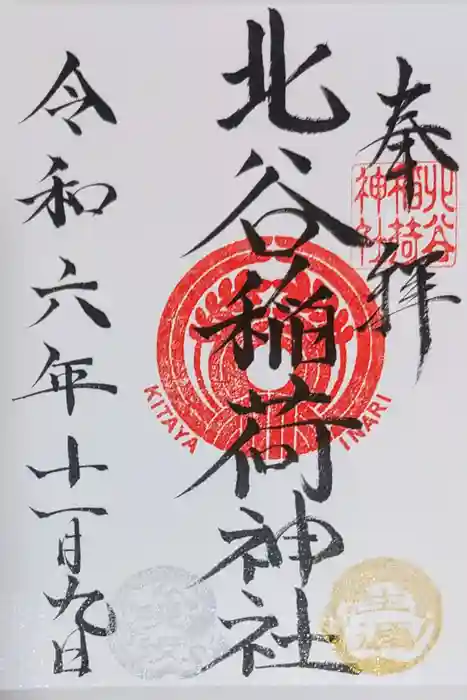 奉拝
北谷稲荷神社
北谷
稲荷
神社
KITAYA INARI
令和六年十一月九日